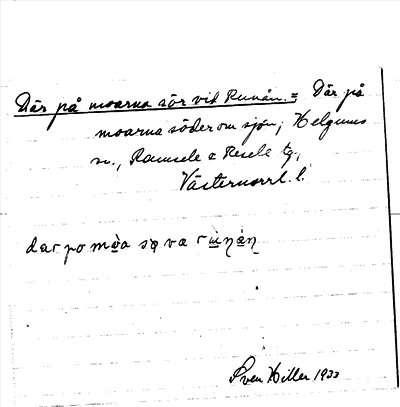 Där på moarna sör vid Runån. = Där på
moarna söder om sjön; Helgums
sn., Ramsele o Resele tg,
Västernorrl. l.
dar po mòa sǫ va rùnán
Sven Hiller 1933